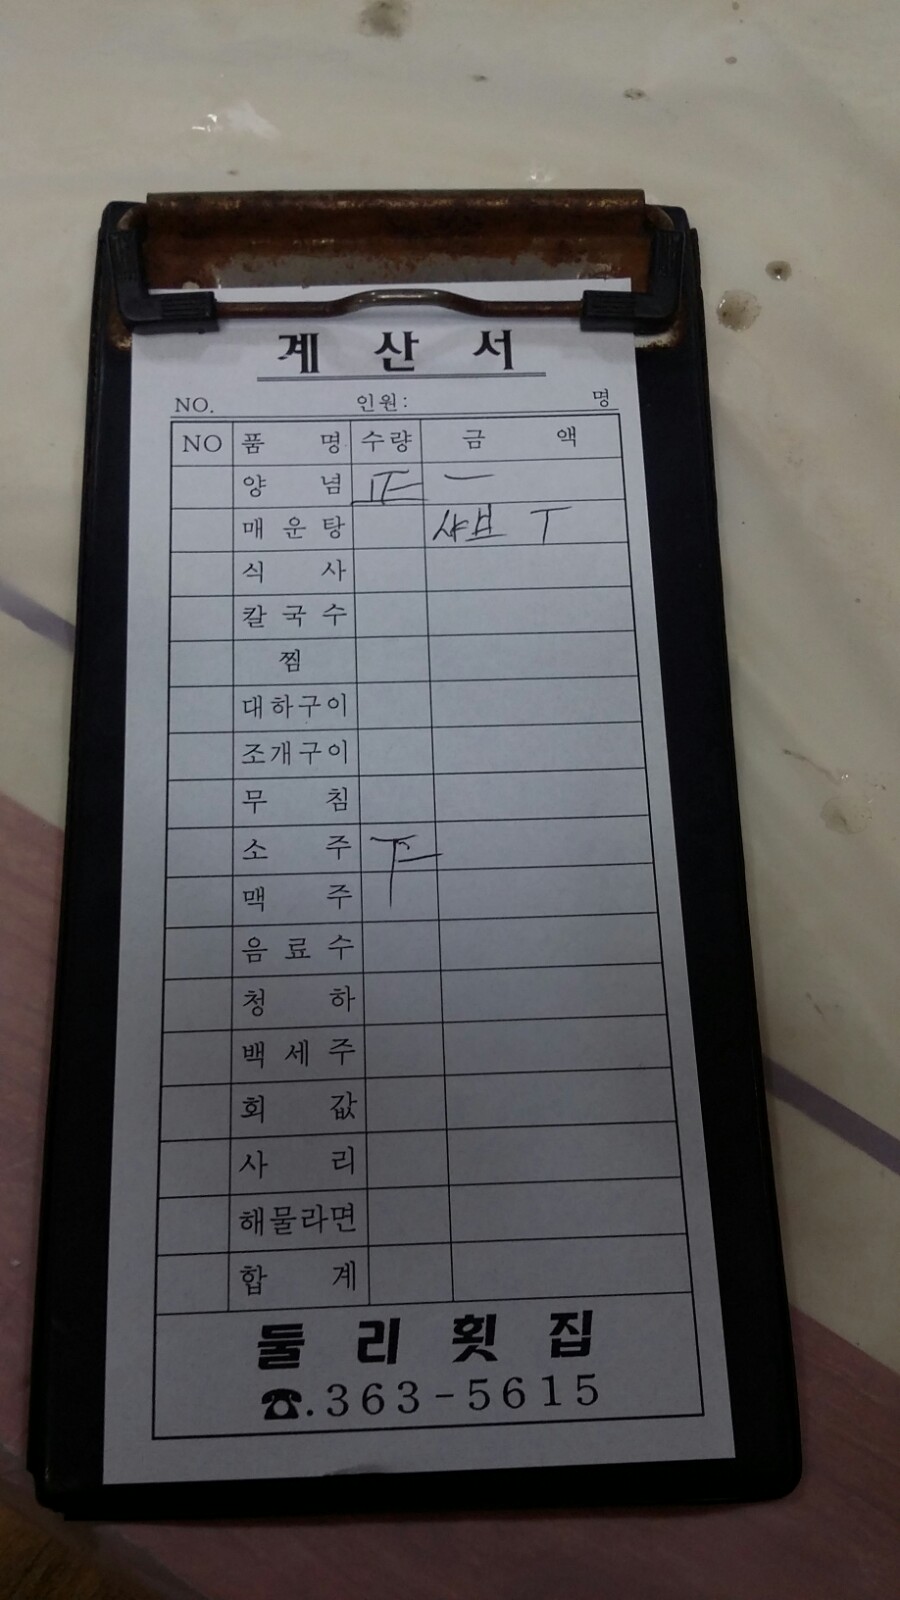 계 산 서
NO. 인원: 명
NO 품 명 수량 금 액
양 념 正 一
매 운 탕 샤브 T
식 사
칼 국 수
찜
대하구이
조개구이
무 침
소 주 下
맥 주
음 료 수
청 하
백 세 주
회 값
사 리
해물라면
합 계
둘 리 횟 집
☎.363-5615